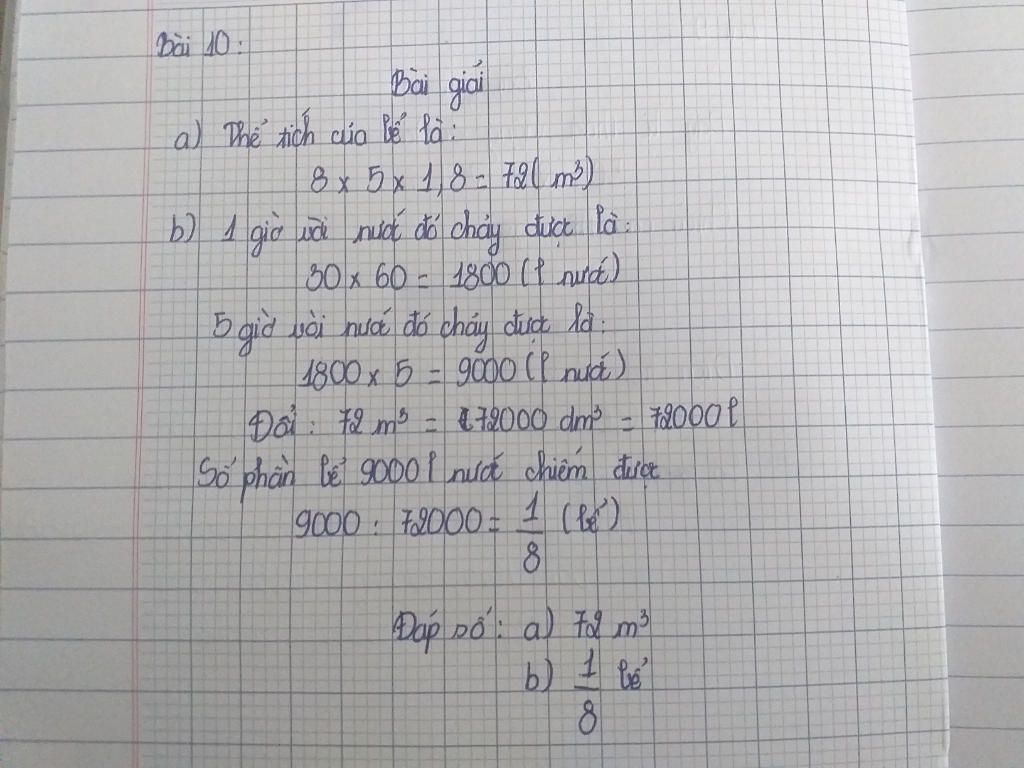 Bài 10:
Bài giải
a) Thể tích của bể là:
8 x 5 x 1,8 = 72 (m³)
b) 1 giờ vòi nước đó chảy được là:
30 x 60 = 1800 (l nước)
5 giờ vòi nước đó chảy được là:
1800 x 5 = 9000 (l nước)
Đổi: 72 m³ = 72000 dm³ = 72000 l
Số phần bể 9000 l nước chiếm được
9000 : 72000 = 1/8 (bể)
Đáp số: a) 72 m³
b) 1/8 bể